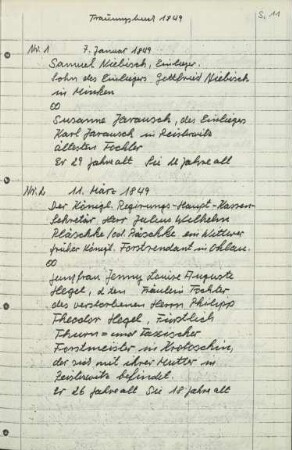 Trauungsbuch 1849
S. 11
Nr. 1 7. Januar 1849
Samuel Niebisch, Einlieger.
Sohn des Einliegers Gottfried Niebisch
in Minken
∞
Susanne Jarausch, des Einliegers
Karl Jarausch in Zeisbwitz
ältesten Tochter
Er 29 Jahre alt Sie 22 Jahre alt
Nr. 2 11. März 1849
Der Königl. Regierungs-Haupt-Kassen-
sekretär Herr Julius Wilhelm
Pläschke/od. Päschke. ein Wittwer
früher Königl. Forstrendant in Ohlau.
∞
Jungfrau Jenny Louise Auguste
Hegel, 2 ten Fräulein Tochter
des verstorbenen Herrn Philipp
Theodor Hegel, Fürstlich
Thurn- und Taxischer
Forstmeister in Krotoschin,
der sich mit ihrer Mutter in
befindet
Er 26 Jahre alt Sie 18 Jahre alt